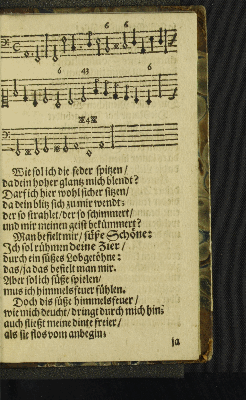 6 6
6 43
4
Wie sol ich die feder spitzen/
da dein hoher glantz mich blendt?
Darf ich hier wohl sicher sitzen/
da dein blitz sich zu mir wendt:
der so strahlet/der so schimmert/
und mir meinen geist bekümmert?
Man befielt mir/ süsse Schöne:
Ich sol rühmen deine Zier/
durch ein süsses Lobgetöhne:
das/ja das befielt man mir.
Aber sol ich süsse spielen/
mus ich himmelsfeuer fühlen.
Doch dis süsse himmelsfeuer/
wie mich deucht/ dringt durch mich hin;
auch fliesst meine dinte freier/
als sie flos vom anbegin;
ja